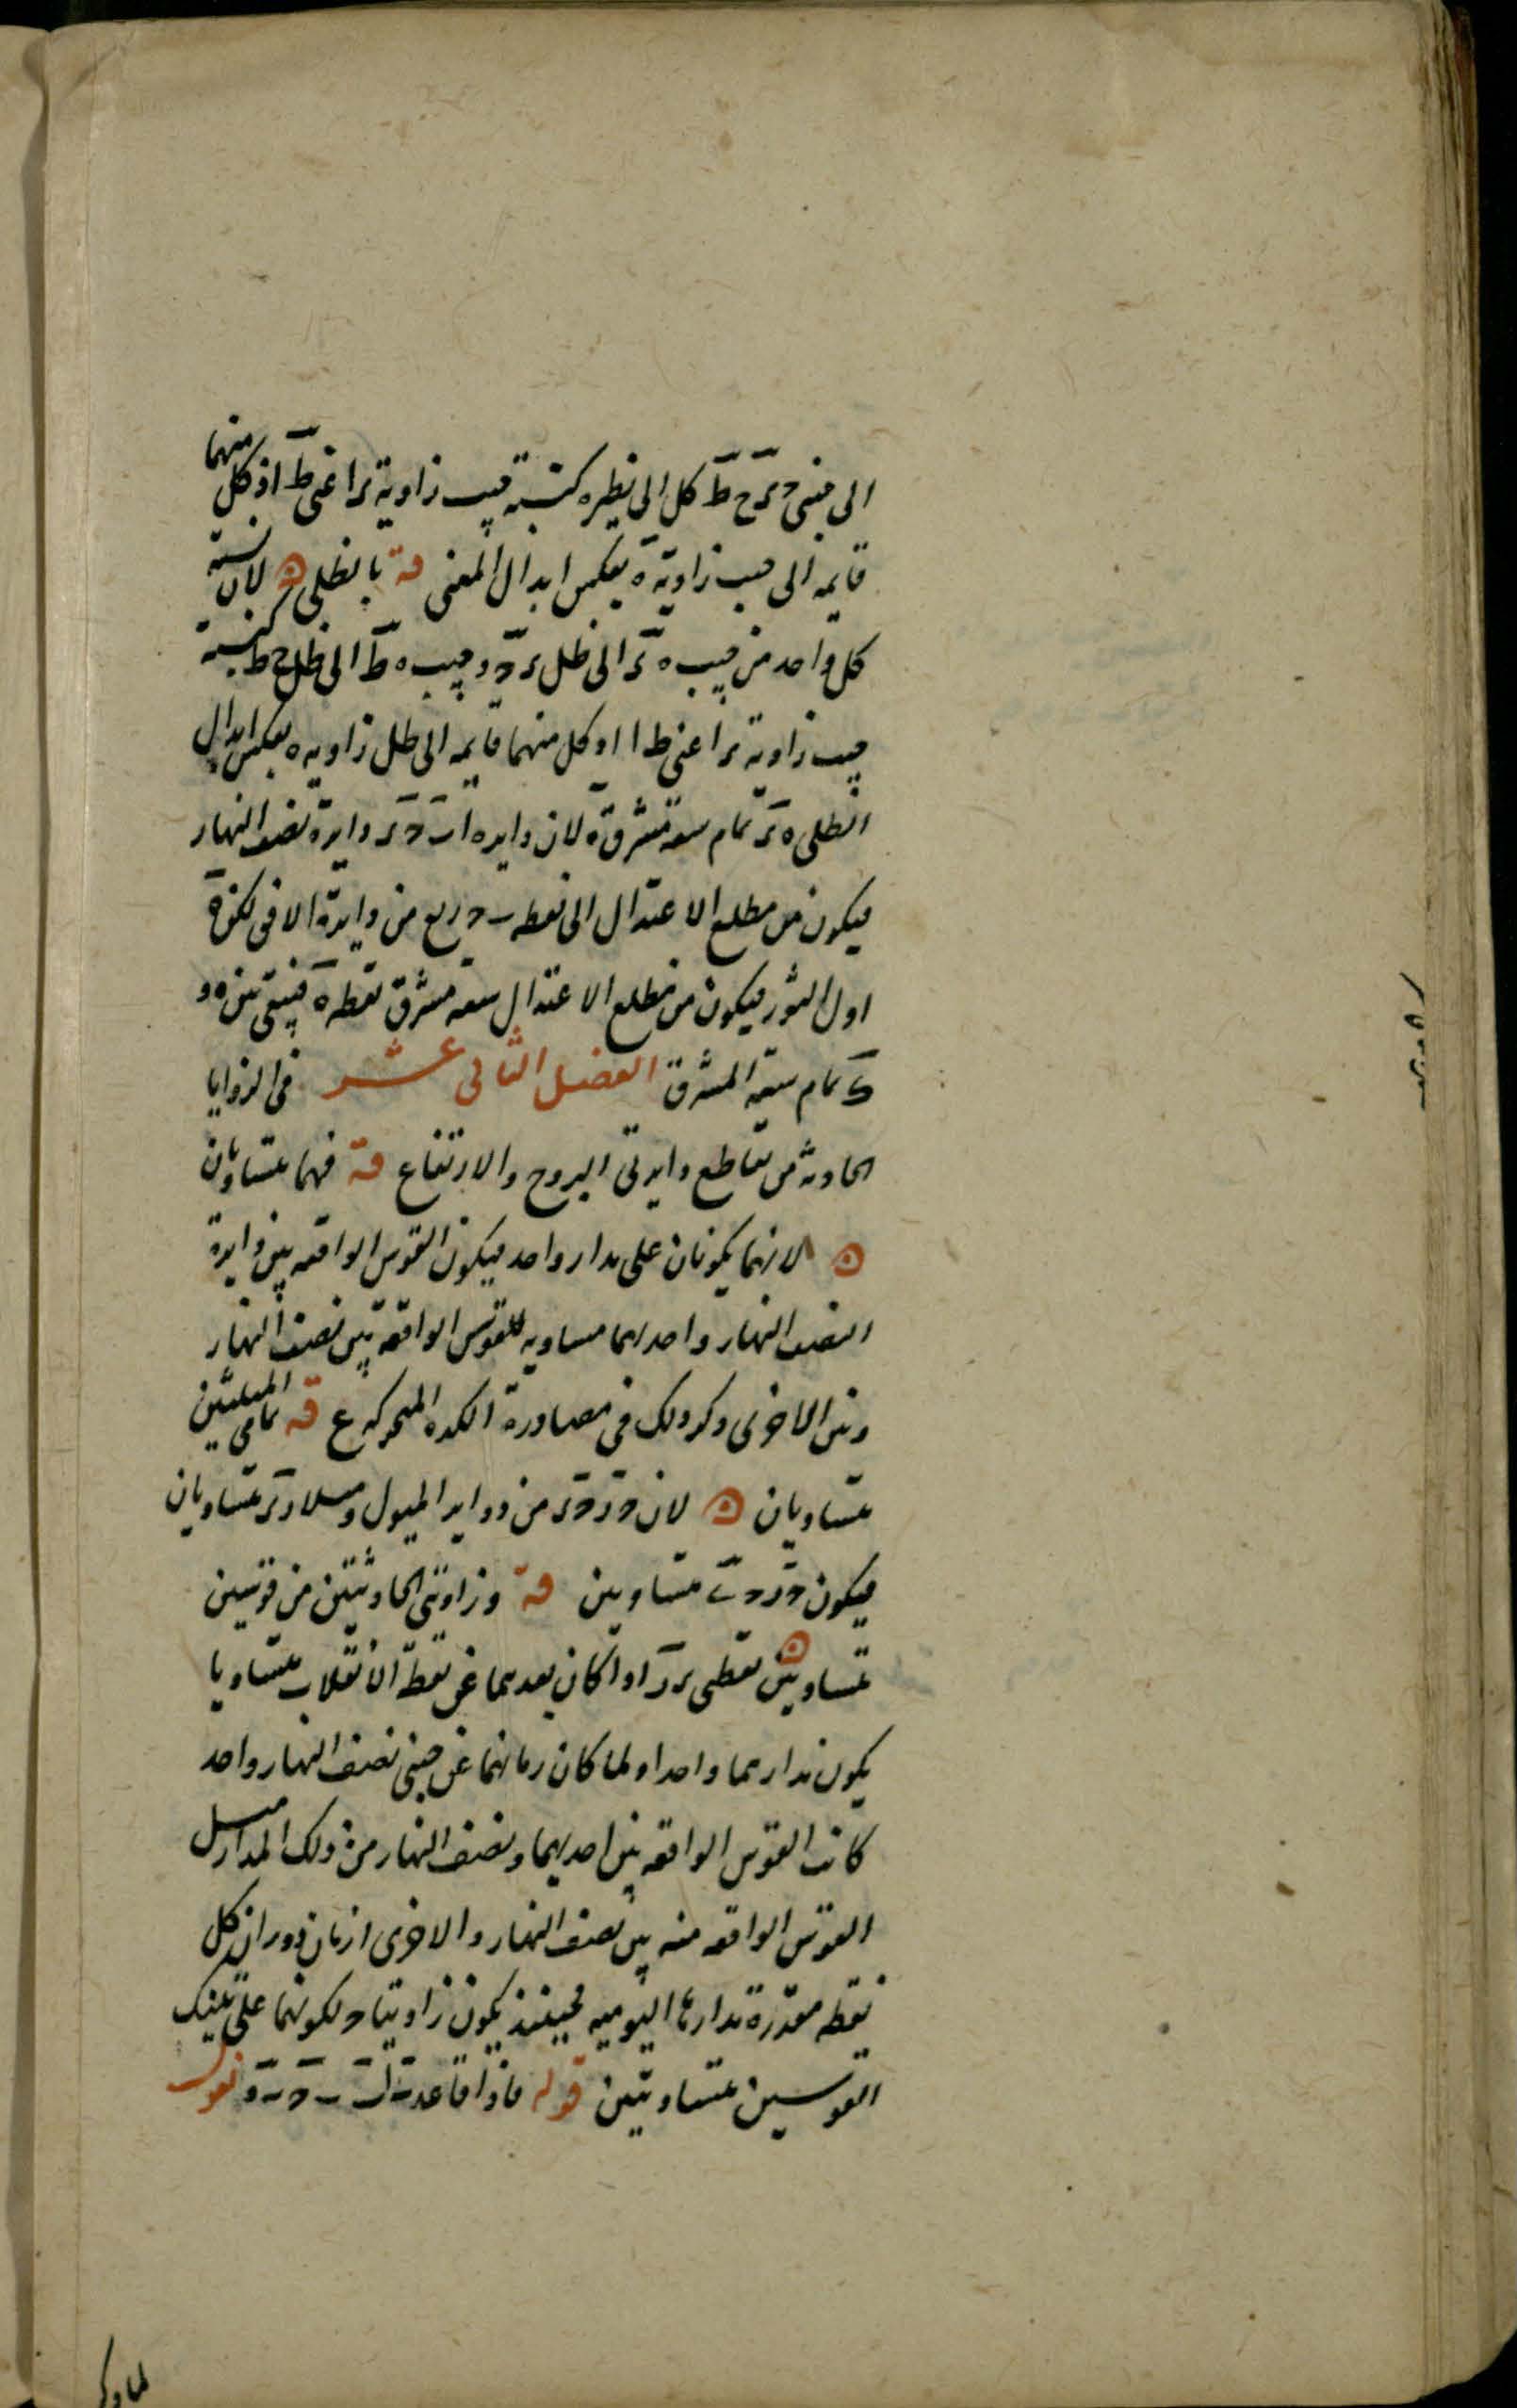 الى جيبى د ز ح ط كل الى نظيره كنسبة جيب زاوية ز اعنى ط اذ كل منهما
قايمه الى جيب زاوية ه بعكس ابدال المغنى قه بالظلى ۵ لان نسبة
كل واحد من جيب ه ز الى ظل ز د و جيب ه ط الى ظل ح ط كنسبة
جيب زاوية ز اعنى ط ا اذ كل منهما قايمه الى ظل زاويه ه بعكس ابدال
الظلى ه ز تمام سعة مشرق ه لان دايره ا ب د ز دايرة نصف النهار
فيكون من مطلع الاعتدال الى نقطه د ربع من دايرة الافق لكن ة
اول الثور فيكون من مطلع الاعتدال سعة مشرق نقطه ة فيبقى من ه و
ك تمام سعة المشرق الفصل الثانى عشر فى الزوايا
الحادثه من تقاطع دايرتى البروج والارتفاع قه فهما متساويان
۵ لانهما يكونان على مدار واحد فيكون القوس الواقعه بين دايرة
النصف النهار واحديهما مساويه للقوس الواقعه بين نصف النهار
وبين الاخرى وكر ذلك فى مصادرة الكره المتحركه ع قه تمامى المثلثين
متساويان ۵ لان د ر د ز من دواير الميول وميلا ر ز متساويان
فيكون د ر د ز متساويين قه وزاويتى الحادثتين من قوسين
متساويين ۵ نقطتى ز ر اذا كان بعدهما عن نقطة الانقلاب متساويا
يكون مدارهما واحدا ولما كان زمانهما عن جنبى نصف النهار واحد
كانت القوس الواقعه بين احديهما ونصف النهار من ذلك المدار مثل
القوس الواقعه منه بين نصف النهار والاخرى ازمان دوران كل
نقطه مقدرة مدارها اليوميه فحينئذ يكون زاويتا د لكونهما على تلك
القوسين متساويتين قوله فاذا قاعدتا ب د ب و نقول